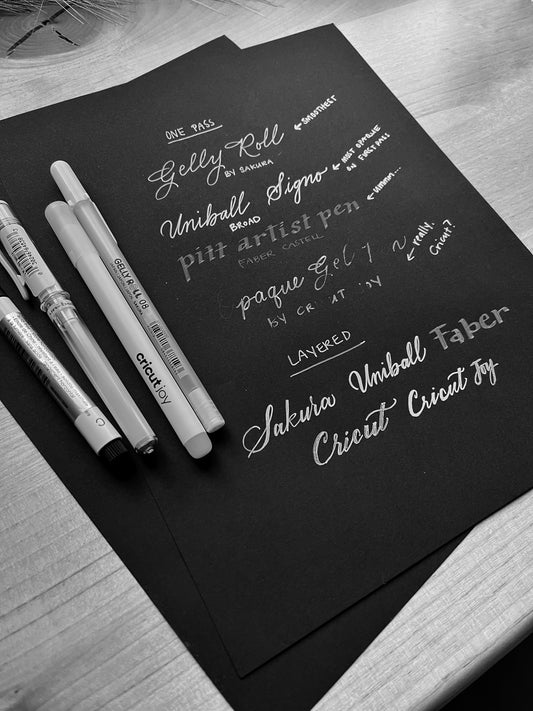 ONE PASS
Gelly Roll
← SMOOTHEST
BY SAKURA
Uniball Signo
← MOST OPAQUE
ON FIRST PASS
BROAD
pitt artist pen
← ummm...
FABER CASTELL
paque Gel
← really,
Cricut?
BY
LAYERED
Sakura Uniball Faber
Cricut Cricut Joy
GELLY ROLL 08
cricut joy